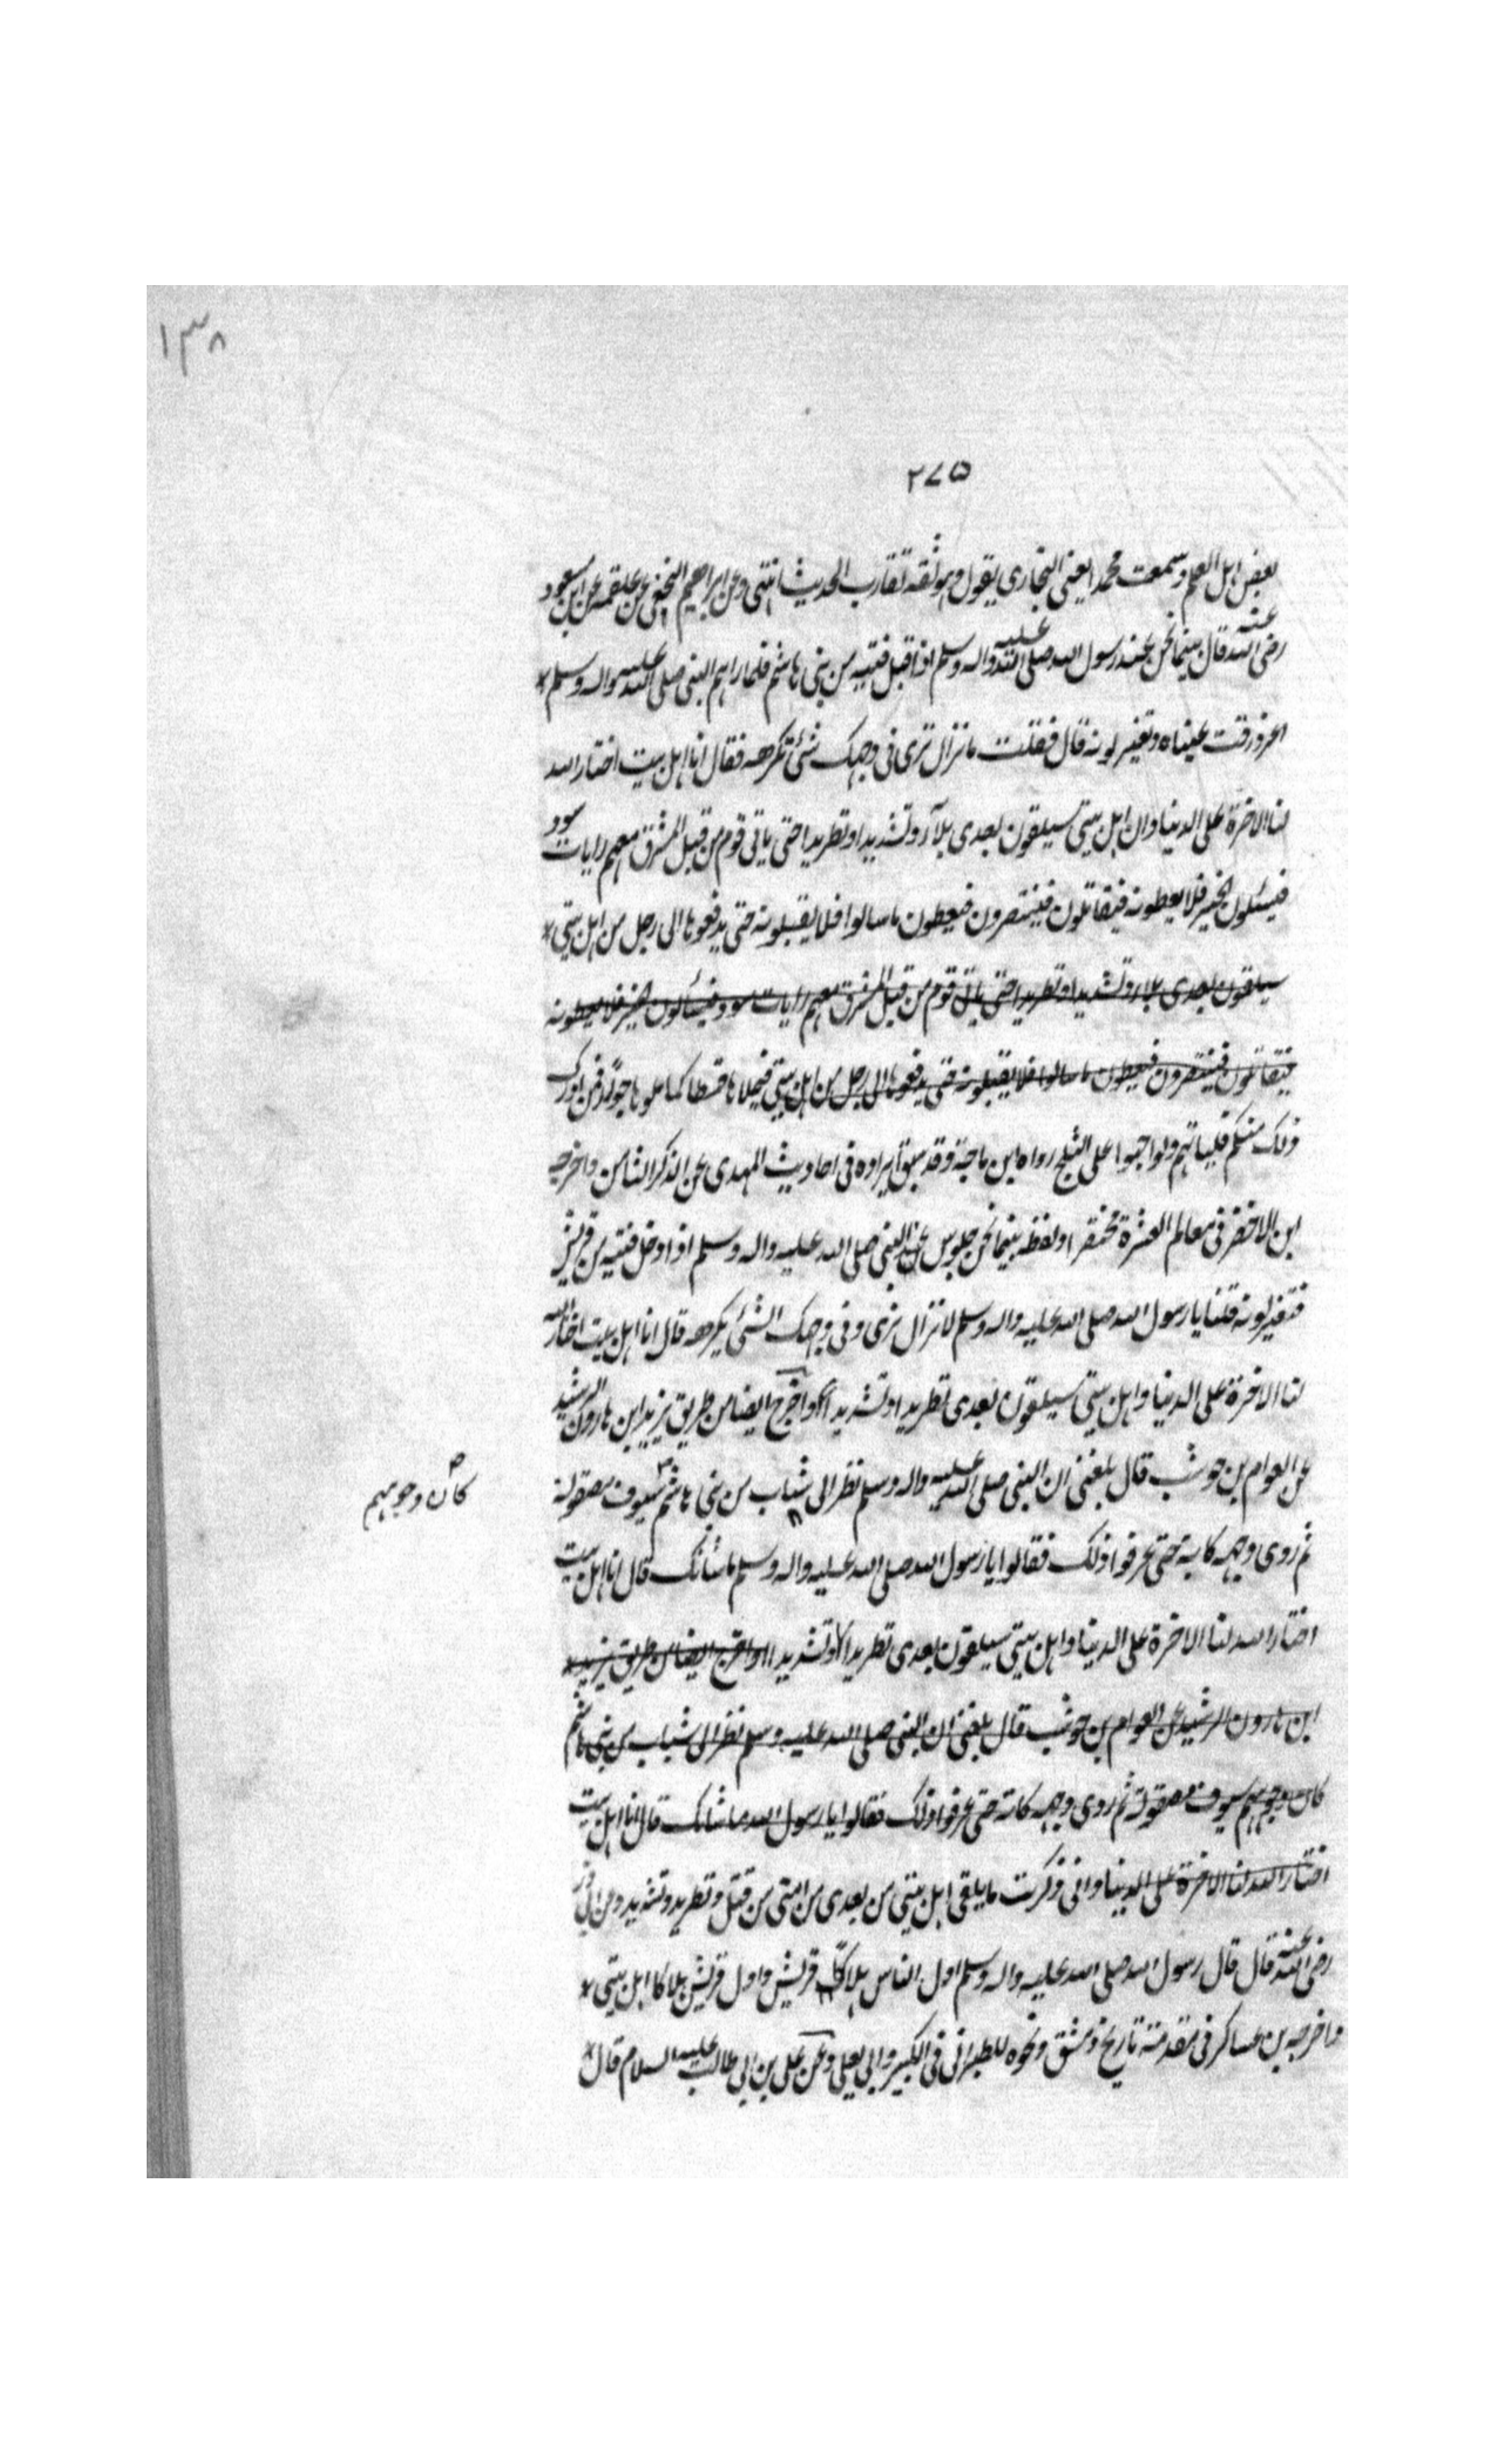 ١٣٨
٢٧٥
بعض اهل العلم وسمعت محمد ايعنى البخارى يقول هو ثقه تقارب الحديث انتهى وعن ابراهيم النخعى عن علقمه عن ابن مسعود
رضى الله عنه قال بينما نحن عند رسول الله صلى الله عليه واله وسلم اذا قبل فتيه من بنى هاشم فلما راهم النبى صلى الله عليه واله وسلم *
اغرورقت عيناه وتغير لونه قال فقلت ما نزال نرى فى وجهك شئ تكرهه فقال انا اهل بيت اختار الله
لنا الاخرة على الدنيا وان اهل بيتى سيلقون بعدى بلآء وتشديدا وتطريدا حتى ياتى قوم من قبل المشرق معهم رايات سود
فيسئلون الخير فلا يعطونه فيقاتلون فينتصرون فيعطون ما سالوا فلا يقبلونه حتى يدفعوها الى رجل من اهل بيتى *
سيلقون بعدى بلاء وتشديدا وتطريدا حتى ياتى قوم من قبل المشرق معهم رايات سود فيسألون الخير فلا يعطونه
فيقاتلون فينتصرون فيعطون ما سالوا فلا يقبلونه حتى يدفعوها الى رجل من اهل بيتى فيملاها قسطا كما ملوها جورًا فمن ادرك
ذلك منكم فلياتهم ولو احبوا على الثلج رواه ابن ماجة وقد سبق ايراده فى احاديث المهدى عن الذكر الثامن واخرجه
ابن الاخضر فى معالم العترة مختصرا ولفظه بينما نحن جلوس عند النبى صلى الله عليه واله وسلم اذا دخل فتيه من قريش
فتغير لونه قلنا يا رسول الله صلى الله عليه واله وسلم لا نزال نرى وفى وجهك الشئ يكرهه قال انا اهل بيت اختار الله
لنا الاخرة على الدنيا واهل بيتى سيلقون بعدى تطريدا وتشديدا واخرج ايضا من طريق يزيد ابن هارون الرشيد
عن العوام بن حوشب قال بلغنى ان النبى صلى الله عليه واله وسلم نظر الى شباب من بنى هاشم سيوف مصقولة
كان وجوههم
ثم روى وجهه كابه حتى عرفوا ذلك فقالوا يا رسول الله صلى الله عليه واله وسلم ما شانك قال انا اهل بيت
اختار الله لنا الاخرة على الدنيا واهل بيتى سيلقون بعدى تطريدا وتشديدا واخرج ايضا من طريق يزيد *
ابن هارون الرشيد عن العوام بن حوشب قال بلغنى ان النبى صلى الله عليه وسلم نظر الى شباب من بنى هاشم
كان وجوههم سيوف مصقولة ثم روى وجهه كابه حتى عرفوا ذلك فقالوا يا رسول الله ما شانك قال انا اهل بيت
اختار الله لنا الاخرة على الدنيا وانى ذكرت ما يلقى اهل بيتى من بعدى من امتى من قتل وتطريد وتشديد وعن ابى ذر
رضى الله عنه قال قال رسول الله صلى الله عليه واله وسلم اول الناس هلاكا قريش واول قريش هلاكا اهل بيتى *
واخرجه بن عساكر فى مقدمته تاريخ دمشق ونحوه للطبرانى فى الكبير وابى يعلى وعن على بن ابى طالب عليه السلام قال *